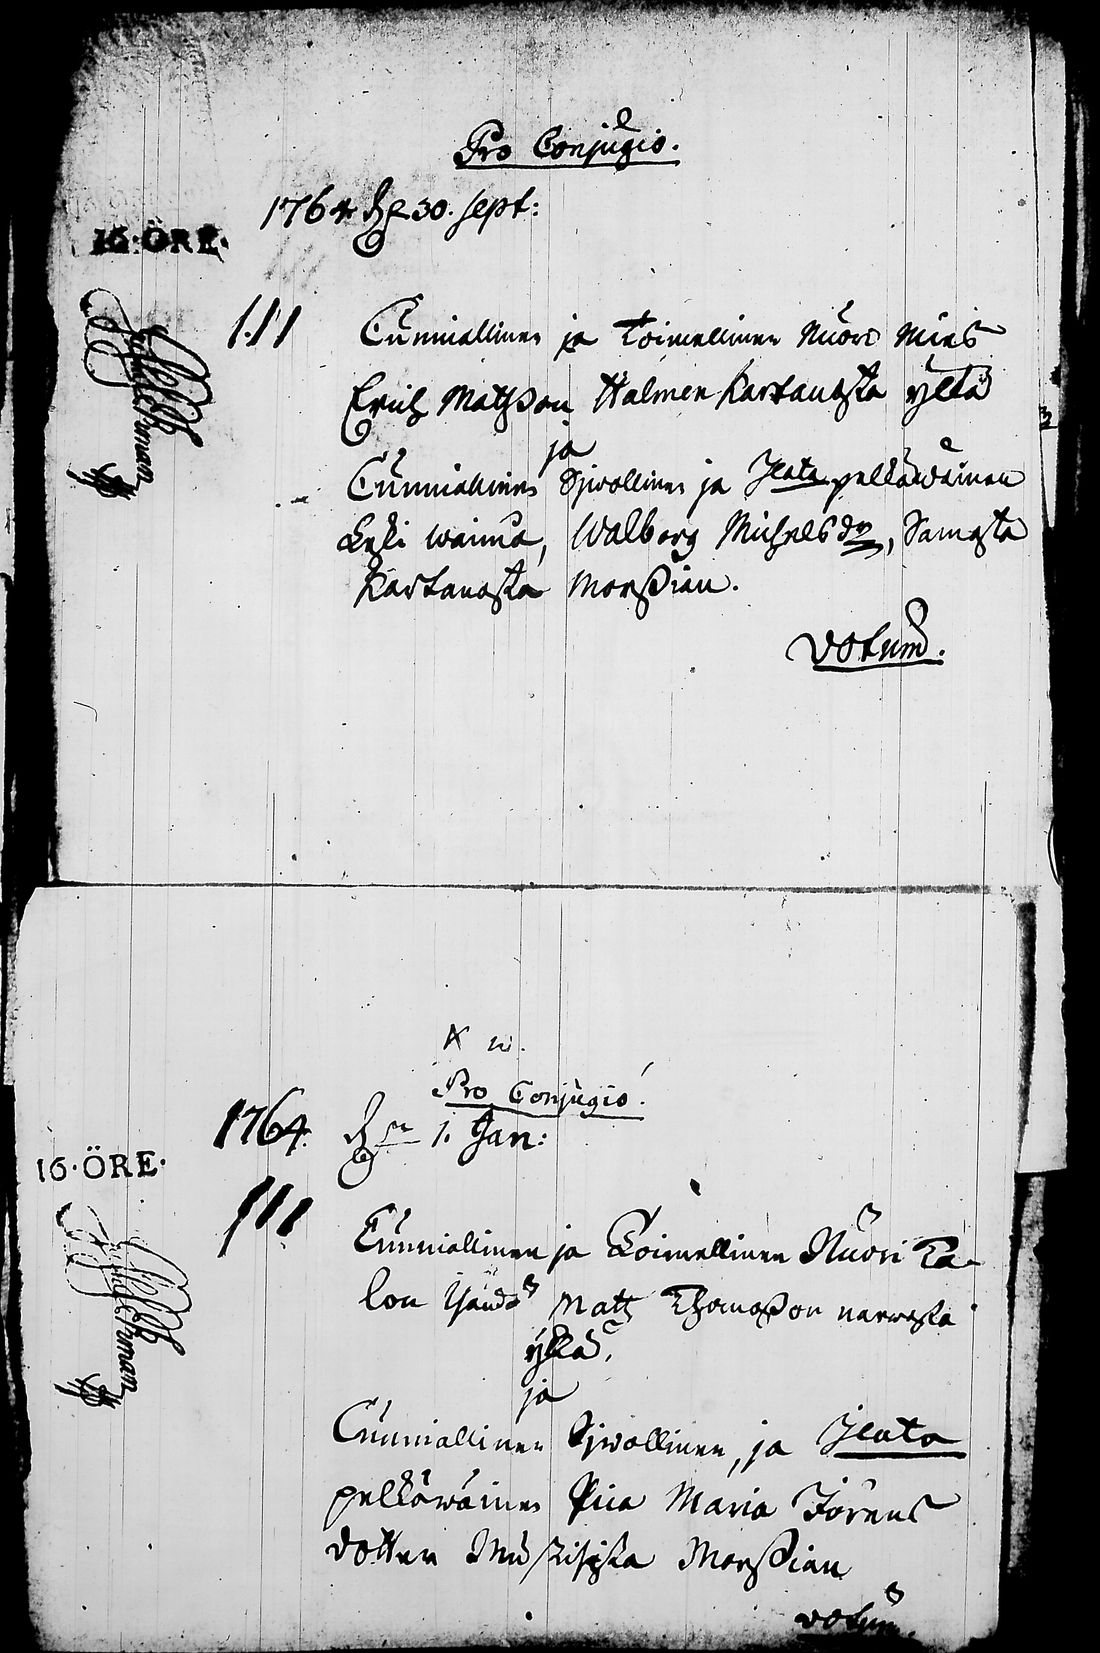 Pro Conjugio.
1764 d. 30. Sept:
16·ÖRE·
Cunniallinen ja Toimellinen Nuori Mies
Erich Matsson Halmen Kartanosta ylkä
ja
Cunniallinen Sjwollinen ja Jlata pelkäwäinen
Leski waimå, Walborg Michelsdr, Samasta
Kartanosta Morsian.
Votum.
N w.
Pro Conjugio.
1764 d. 1. Jan:
16·ÖRE·
Cunniallinen ja Toimellinen Nuori Ta-
lon Isändä Matz Thomasson
ylkä,
ja
Cunniallinen Sjwollinen, ja Jlata
pelkäwäinen Pica Maria Jörens
dotter Morsian
Votum.